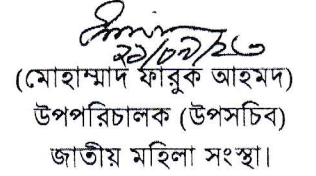 ২১/০৯/২৩
(মোহাম্মাদ ফারুক আহমদ)
উপপরিচালক (উপসচিব)
জাতীয় মহিলা সংস্থা।